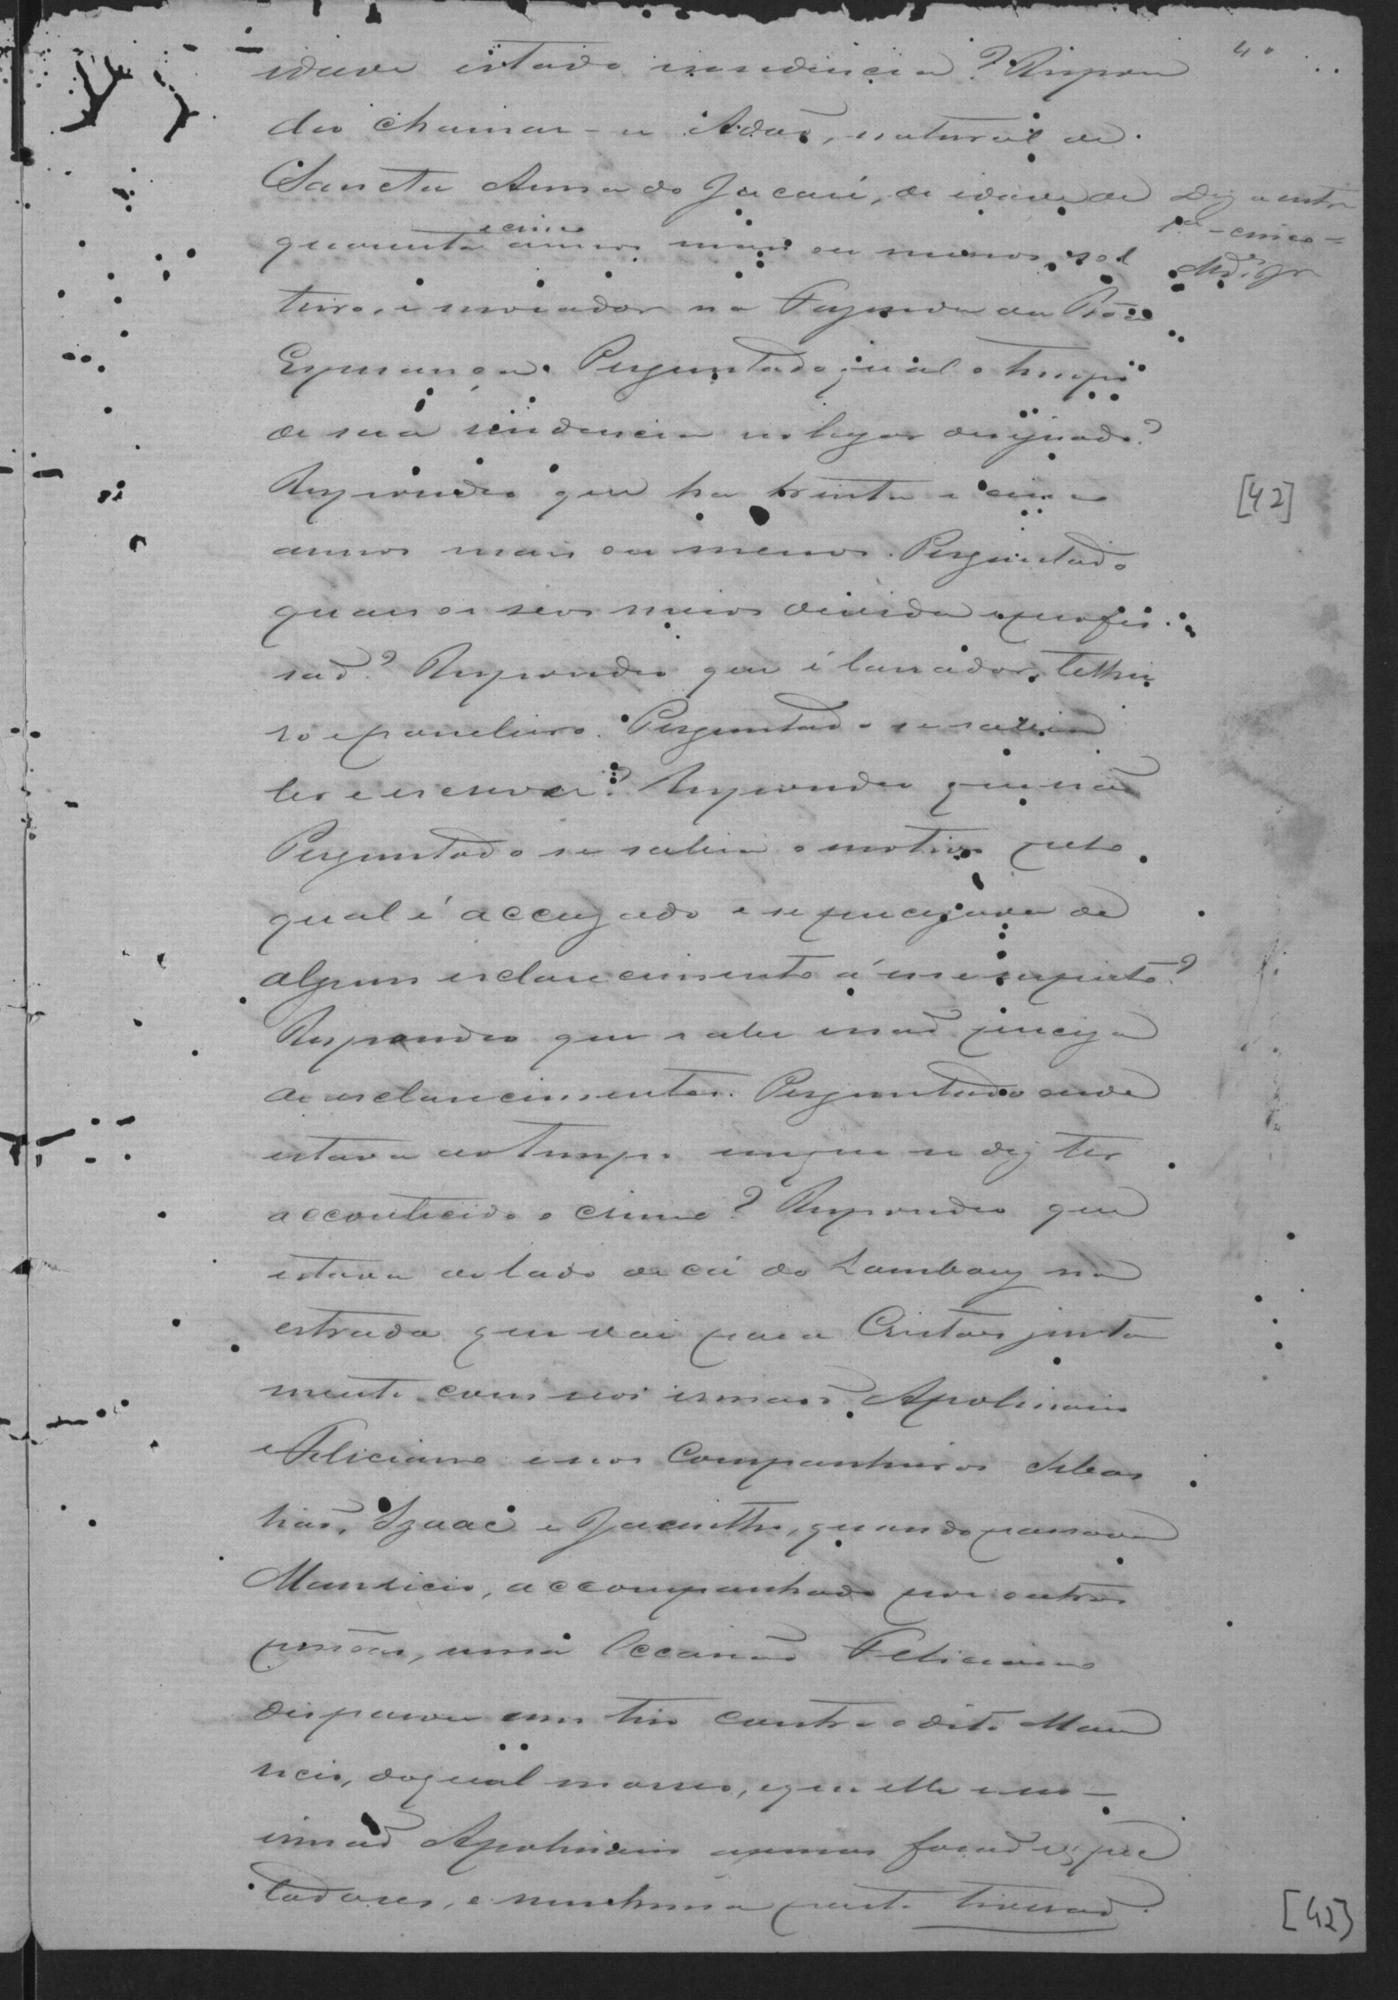 40
idade estado e residencia? Respon
deo chamar-se Adão, natural de
Sancta Anna do Jacaré, de idade de
quarenta e cinco annos mais ou menos, sol
teiro, e morador na Fazenda da Bôa
Esperança. Perguntado qual o tempo
de sua residencia no lugar designado?
Respondeo que ha trinta e cinco
annos mais ou menos. Perguntado
quaes os seos meios de vida e profis
saõ? Respondeo que é lavrador, telhei
ro e paneleiro. Perguntado se sabia
ler e escrever? Respondeo que não
Perguntado se sabia o motivo pelo
qual é accuzado e se precizava de
algum esclarecimento á esse respeito?
Respondeo que sabe e naõ preciza
de esclarecimentos. Perguntado onde
estava ao tempo em que se diz ter
accontecido o crime? Respondeo que
estava do lado de cá do Lambary na
estrada que vai para Cristaes junta
mente com seos irmaõs Apolinario
e Feliciano e nos Companheiros Sebas
tiaõ, Izaac e Jacintho, quando passava
Mauricio, accompanhado por outras
pessôas, nessa occasiaõ Feliciano
disparou um tiro contra o dito Mau
ricio, do qual morreo, e que elle e seo
irmaõ Apolinario apenas foraõ expec
tadores, e nenhuma parte tiveraõ.
Diz a entre
lª - cinco -
[42]
[42]